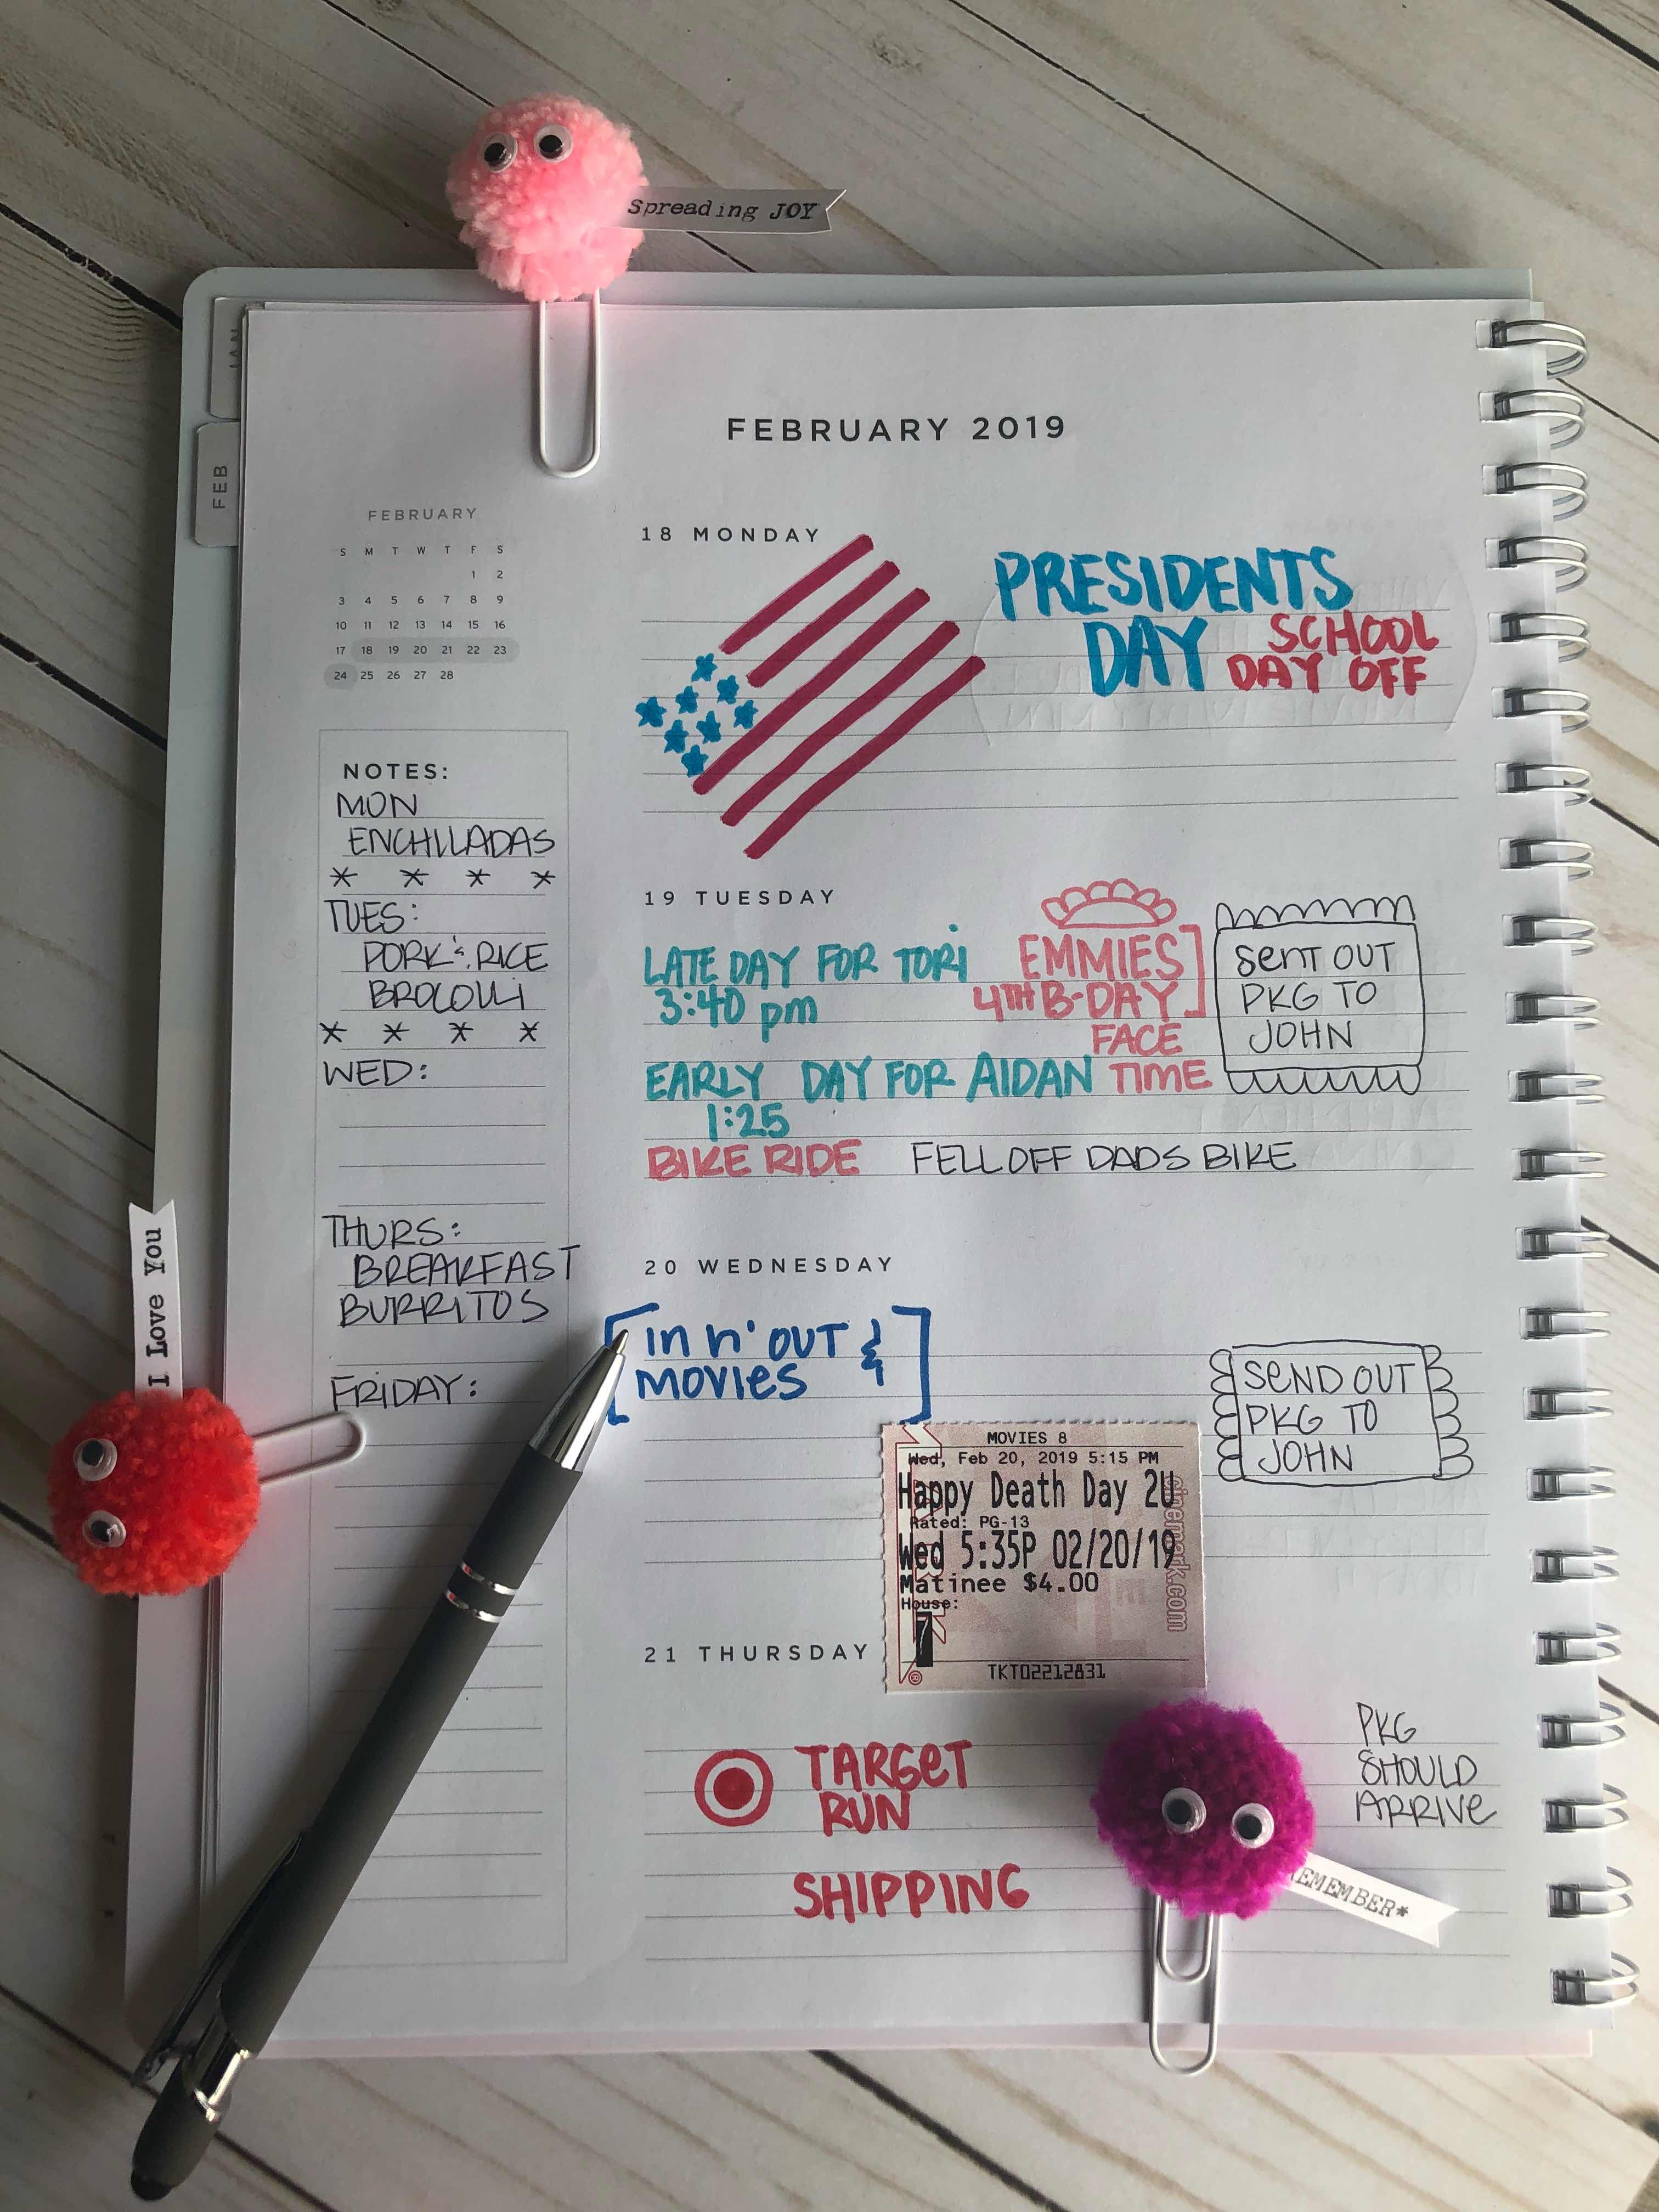 Spreading JOY
JAN
FEB
FEBRUARY 2019
FEBRUARY
S M T W T F S
1 2
3 4 5 6 7 8 9
10 11 12 13 14 15 16
17 18 19 20 21 22 23
24 25 26 27 28
NOTES:
MON
ENCHILADAS
* * * *
TUES:
PORK & RICE
BROCOLLI
* * * *
WED:
THURS:
BREAKFAST
BURRITOS
FRIDAY:
I Love You
18 MONDAY
PRESIDENTS
DAY
SCHOOL
DAY OFF
19 TUESDAY
LATE DAY FOR TORI
3:40 pm
EMMIES
4TH B-DAY
FACE
TIME
SENT OUT
PKG TO
JOHN
EARLY DAY FOR AIDAN
1:25
BIKE RIDE FELL OFF DADS BIKE
20 WEDNESDAY
IN N' OUT &
MOVIES
SEND OUT
PKG TO
JOHN
MOVIES 8
Wed, Feb 20, 2019 5:15 PM
Happy Death Day 2U
Rated: PG-13
Wed 5:35P 02/20/19
Matinee $4.00
House:
7
TKT02212831
cinemark.com
21 THURSDAY
TARGET
RUN
SHIPPING
PKG
SHOULD
ARRIVE
EMEMBER*